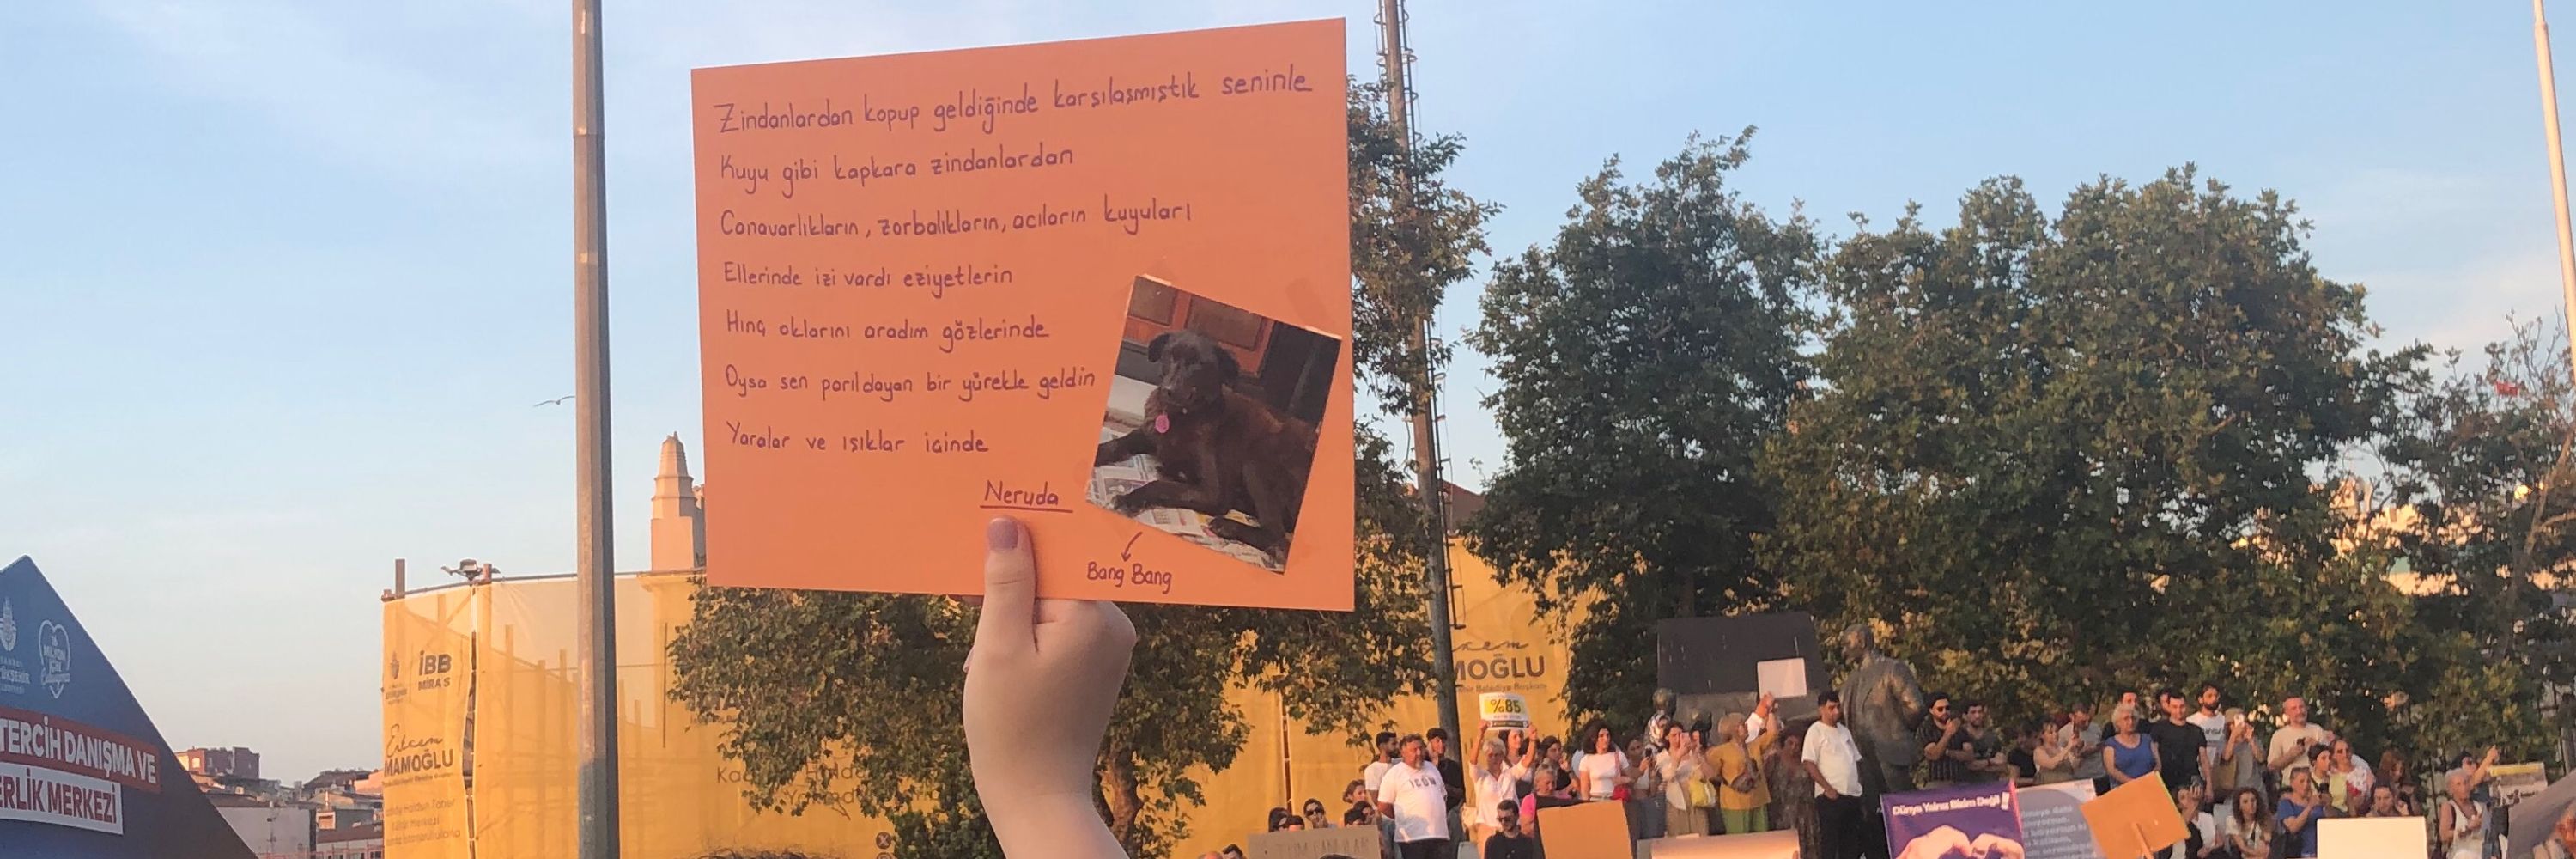 Zindanlardan kopup geldiğinde karşılaşmıştık seninle
Kuyu gibi kapkara zindanlardan
Canavarlıkların, zorbalıkların, acıların kuyuları
Ellerinde izi vardı eziyetlerin
Hınç oklarını aradım gözlerinde
Oysa sen parıldayan bir yürekle geldin
Yaralar ve ışıklar içinde
Neruda
Bang Bang
TERCİH DANIŞMA VE
ERLİK MERKEZİ
İBB
MİRAS
Ekrem
MAMOĞLU
MOĞLU
%85
ICON
Dünya Yalnız Bizim Değil!